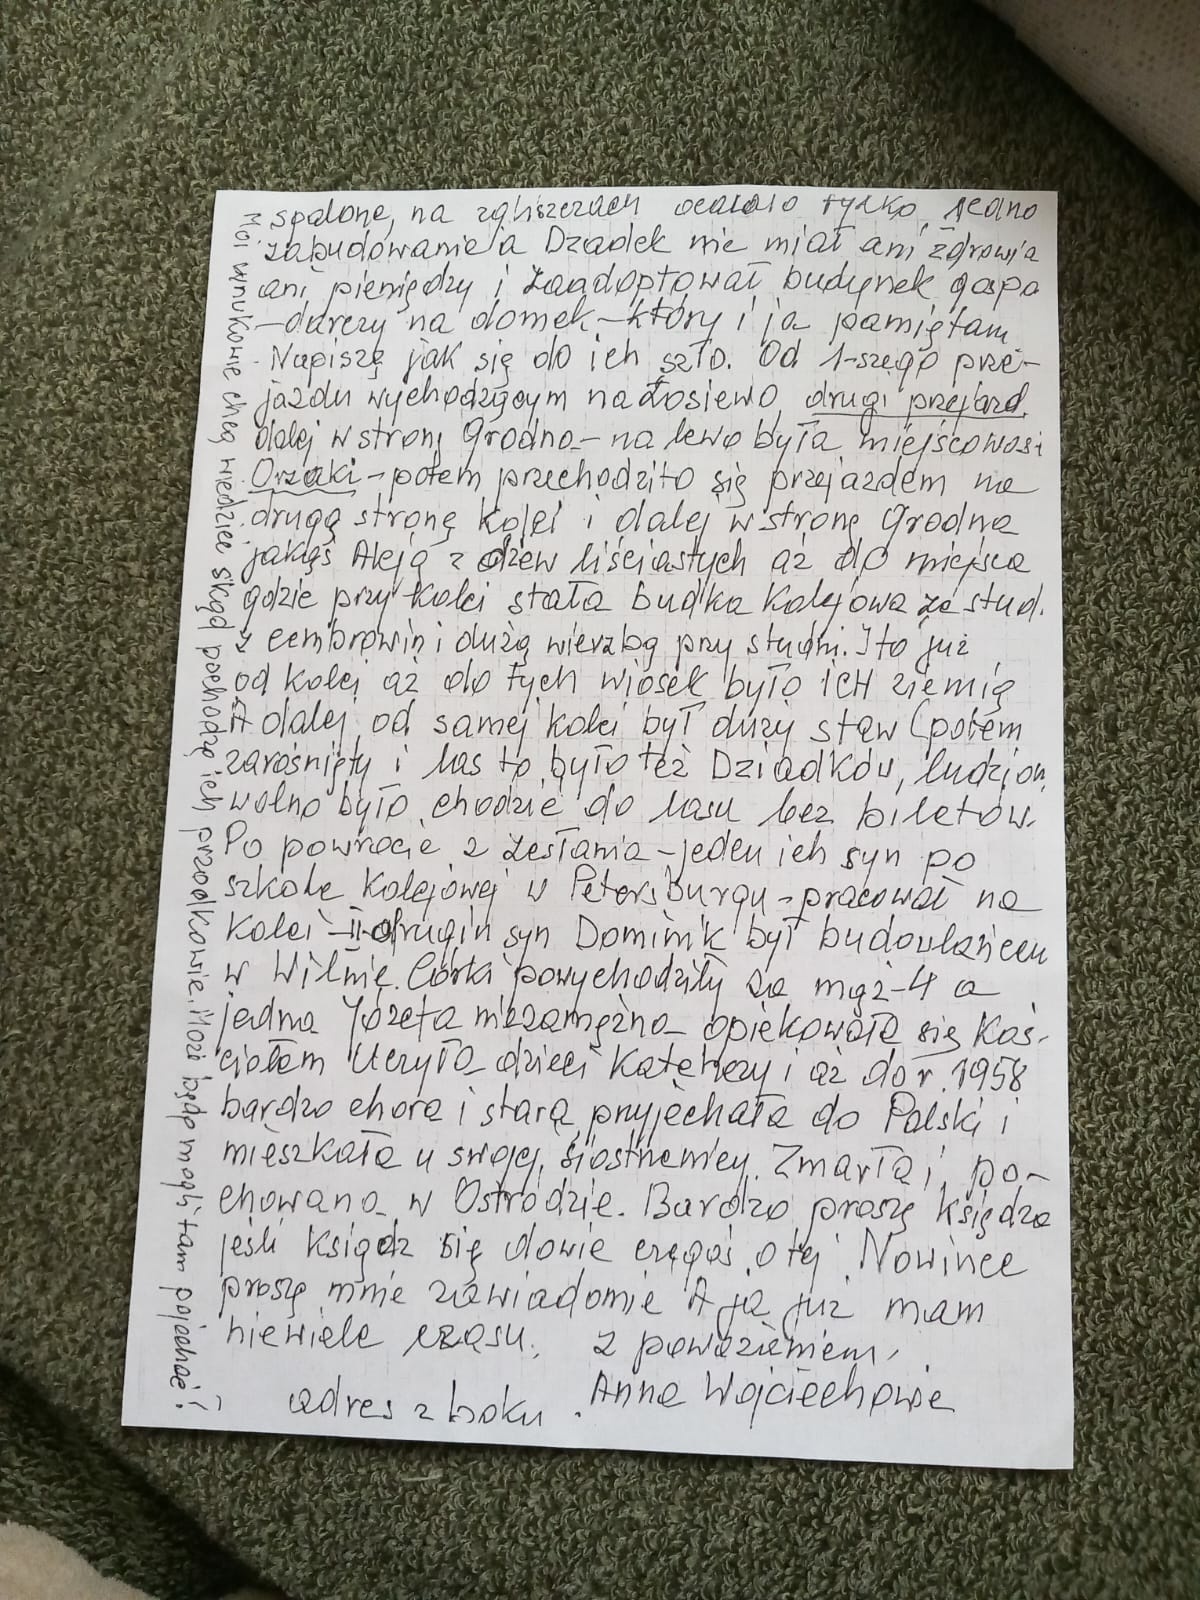 spalone, na zgliszczach ocalało tylko jedno
zabudowanie a Dziadek nie miał ani zdrowia
ani pieniędzy i zaadoptował budynek gospo
-darczy na domek - który i ja pamiętam
Napiszę jak się do ich szło. Od 1-szego prze-
jazdu wychodzącym na Łosiewo, drugi przejazd
dalej w stronę Grodna - na lewo była miejscowość
Orzaki - potem przechodziło się przejazdem na
drugą stronę kolei i dalej w stronę Grodna
jakąś Aleją z drzew liściastych aż do miejsca
gdzie przy kolei stała budka kolejowa ze stud.
z cembrowin i dużą wierzbą przy studni. I to już
od kolei aż do tych wiosek było ICH ziemią
A dalej od samej kolei był duży staw (potem
zarośnięty i las to było też Dziadków, ludziom
wolno było chodzić do lasu bez biletów.
Po powrocie z zesłania - jeden ich syn po
szkole kolejowej w Petersburgu - pracował na
kolei - II drugin syn Dominik był budowlańcem
w Wilnie. Córki powychodziły za mąż - 4 a
jedna Józefa niezamężna opiekowała się koś-
ciołem Uczyła dzieci katehezy i aż do r. 1958
bardzo chora i stara przyjechała do Polski i
mieszkała u swojej siostrzenicy. Zmarła i po-
chowana w Ostródzie. Bardzo proszę księdza
jeśli ksiądz się dowie czegoś o tej Nowince
proszę mnie zawiadomić A ja już mam
niewiele czasu. Z poważaniem,
adres z boku. Anna Wojciechowicz
Moi wnukowie chcą wiedzieć skąd pochodzą ich przodkowie. Może będą mogli tam pojechać!